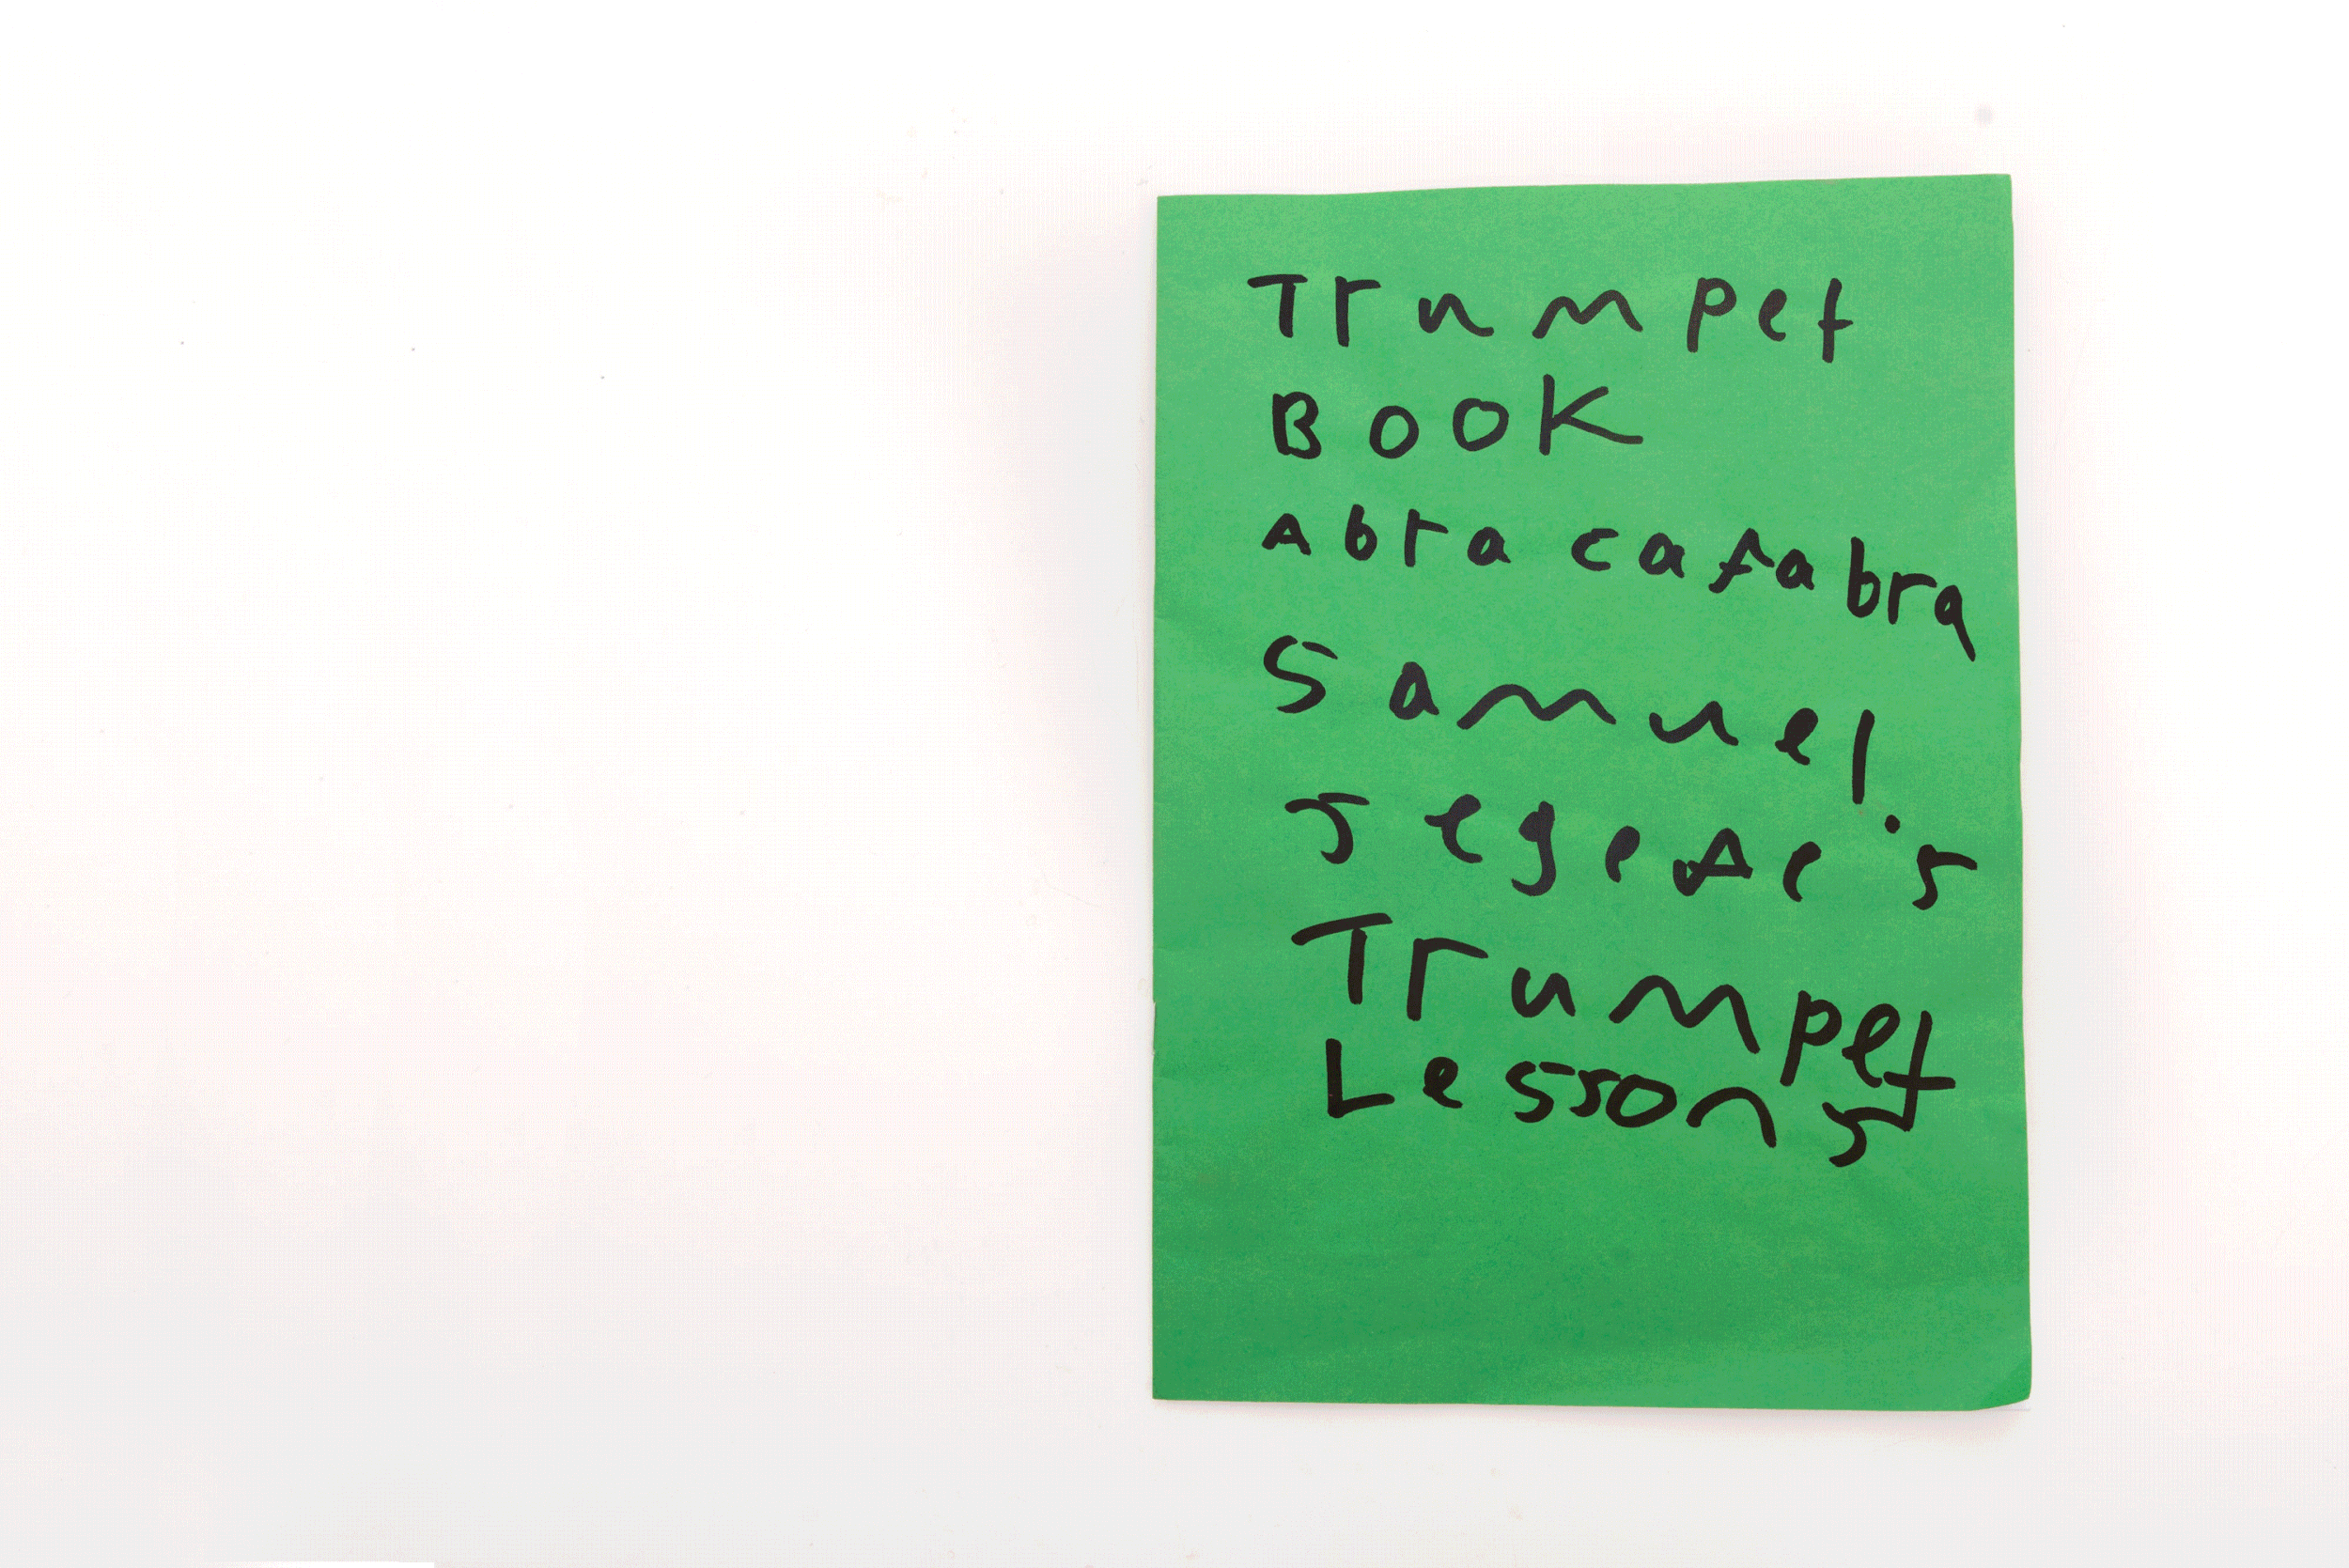 Trumpet
BOOK
Abracafabra
Samuel
segere's
Trumpet
Lessons